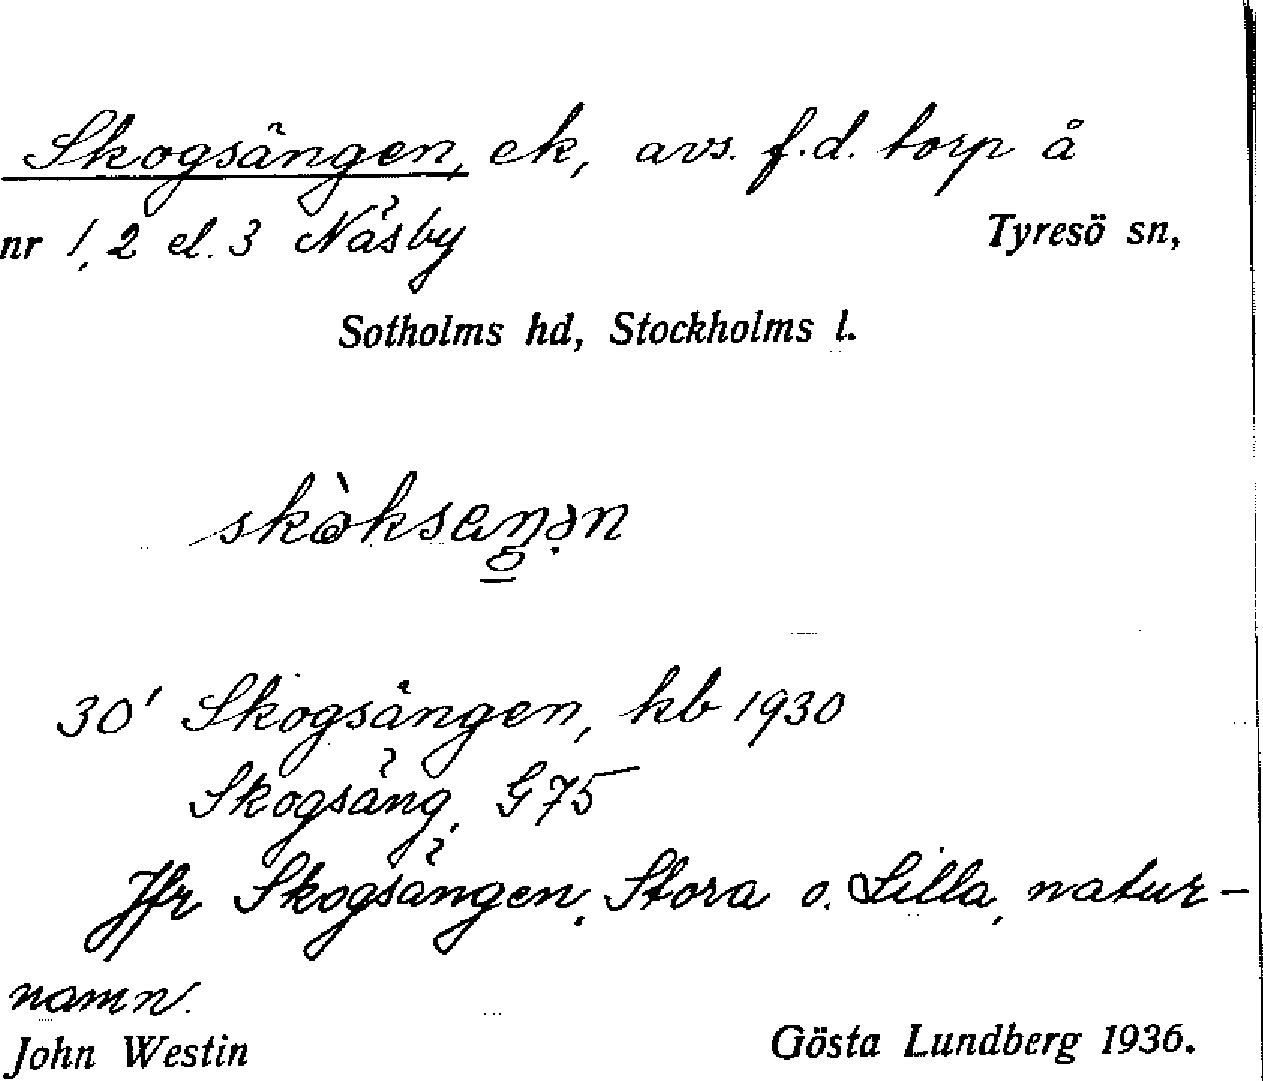 Skogsängen, ek, avs. f.d. torp å
nr 1, 2 el. 3 Näsby Tyresö sn,
Sotholms hd, Stockholms l.
skòksaŋən
30' Skogsängen, kb 1930
Skogsäng, G 75
Jfr Skogsängen, Stora o. Lilla, natur-
namn.
John Westin Gösta Lundberg 1936.